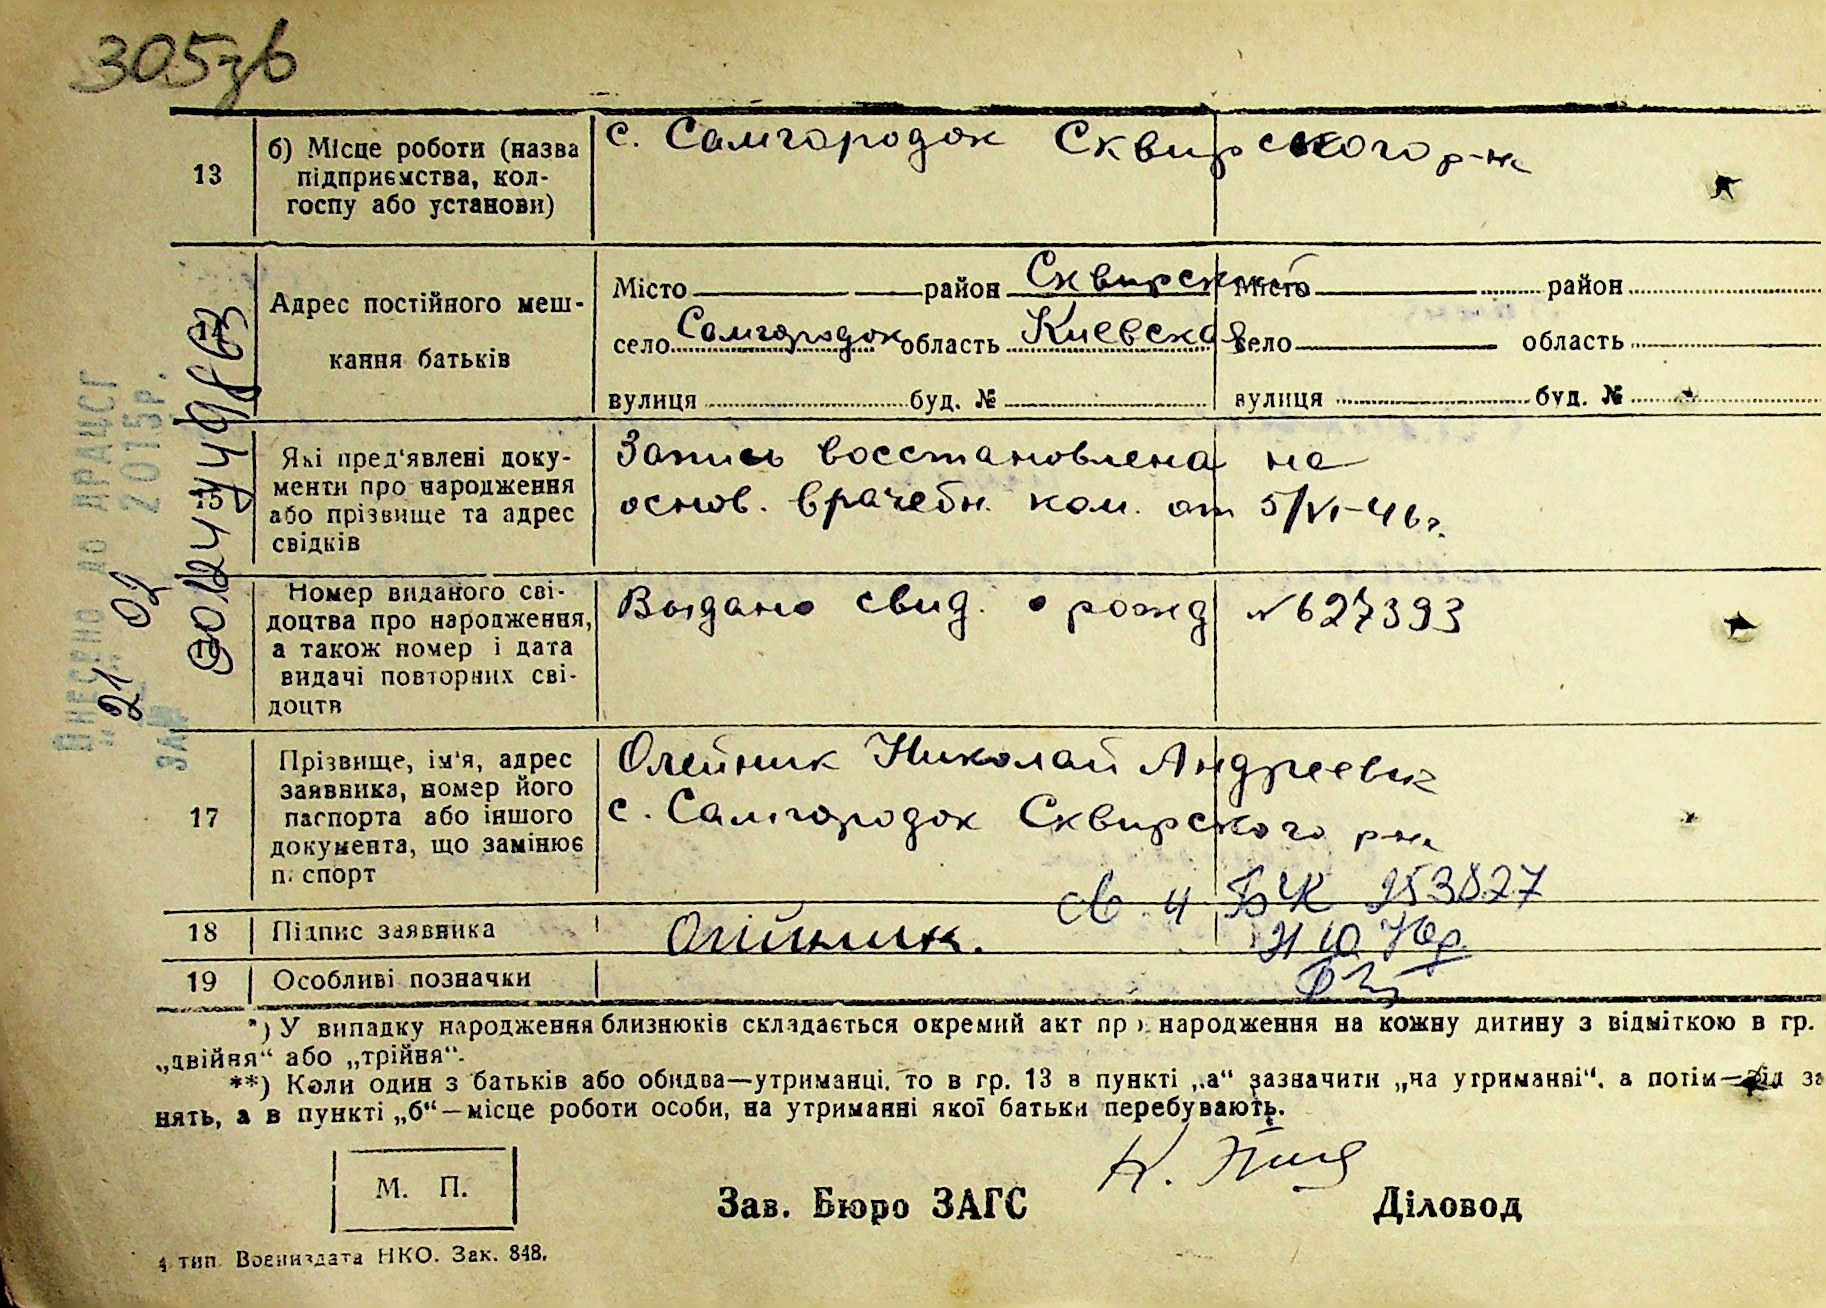 305зв
13
б) Місце роботи (назва
підприємства, кол-
госпу або установи)
с. Самгородок Сквирского р-на
14
Адрес постійного меш-
кання батьків
Місто район Сквирский
село Самгородок область Киевская
вулиця буд. №
Місто район
село область
вулиця буд. №
15
Які пред'явлені доку-
менти про народження
або прізвище та адрес
свідків
Запись восстановлена на
основ. врачебн. ком. от 5/VI-46г.
16
Номер виданого сві-
доцтва про народження,
а також номер і дата
видачі повторних сві-
доцтв
Выдано свид. о рожд №627393
17
Прізвище, ім'я, адрес
заявника, номер його
паспорта або іншого
документа, що замінює
п. спорт
Олейник Николай Андреевич
с. Самгородок Сквирского р-на
18
Підпис заявника
Олійник.
св. ІІ БК 953827
19
Особливі позначки
ВНЕСЕНО ДО ДРАЦСГ
21 02 2015р.
*) У випадку народження близнюків складається окремий акт про народження на кожну дитину з відміткою в гр.
„двійня“ або „трійня“.
**) Коли один з батьків або обидва—утриманці, то в гр. 13 в пункті „а“ зазначити „на утриманні“, а потім—від за
нять, а в пункті „б“—місце роботи особи, на утриманні якої батьки перебувають.
М. П.
Зав. Бюро ЗАГС
Діловод
4 тип. Воениздата НКО. Зак. 848.